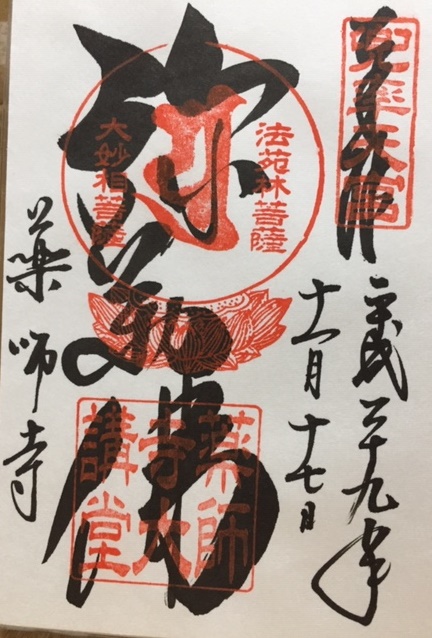 平成二十九年
十一月十七日
法苑林菩薩
弥勒佛
大妙相菩薩
薬師
寺大
講堂
藥師寺